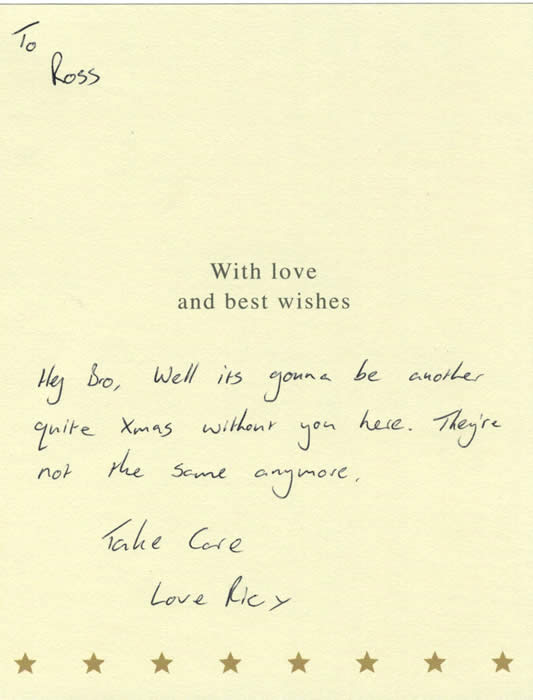 To
Ross
With love
and best wishes
Hey Bro, Well its gonna be another
quite Xmas without you here. They're
not the same anymore.
Take Care
Love Ricy